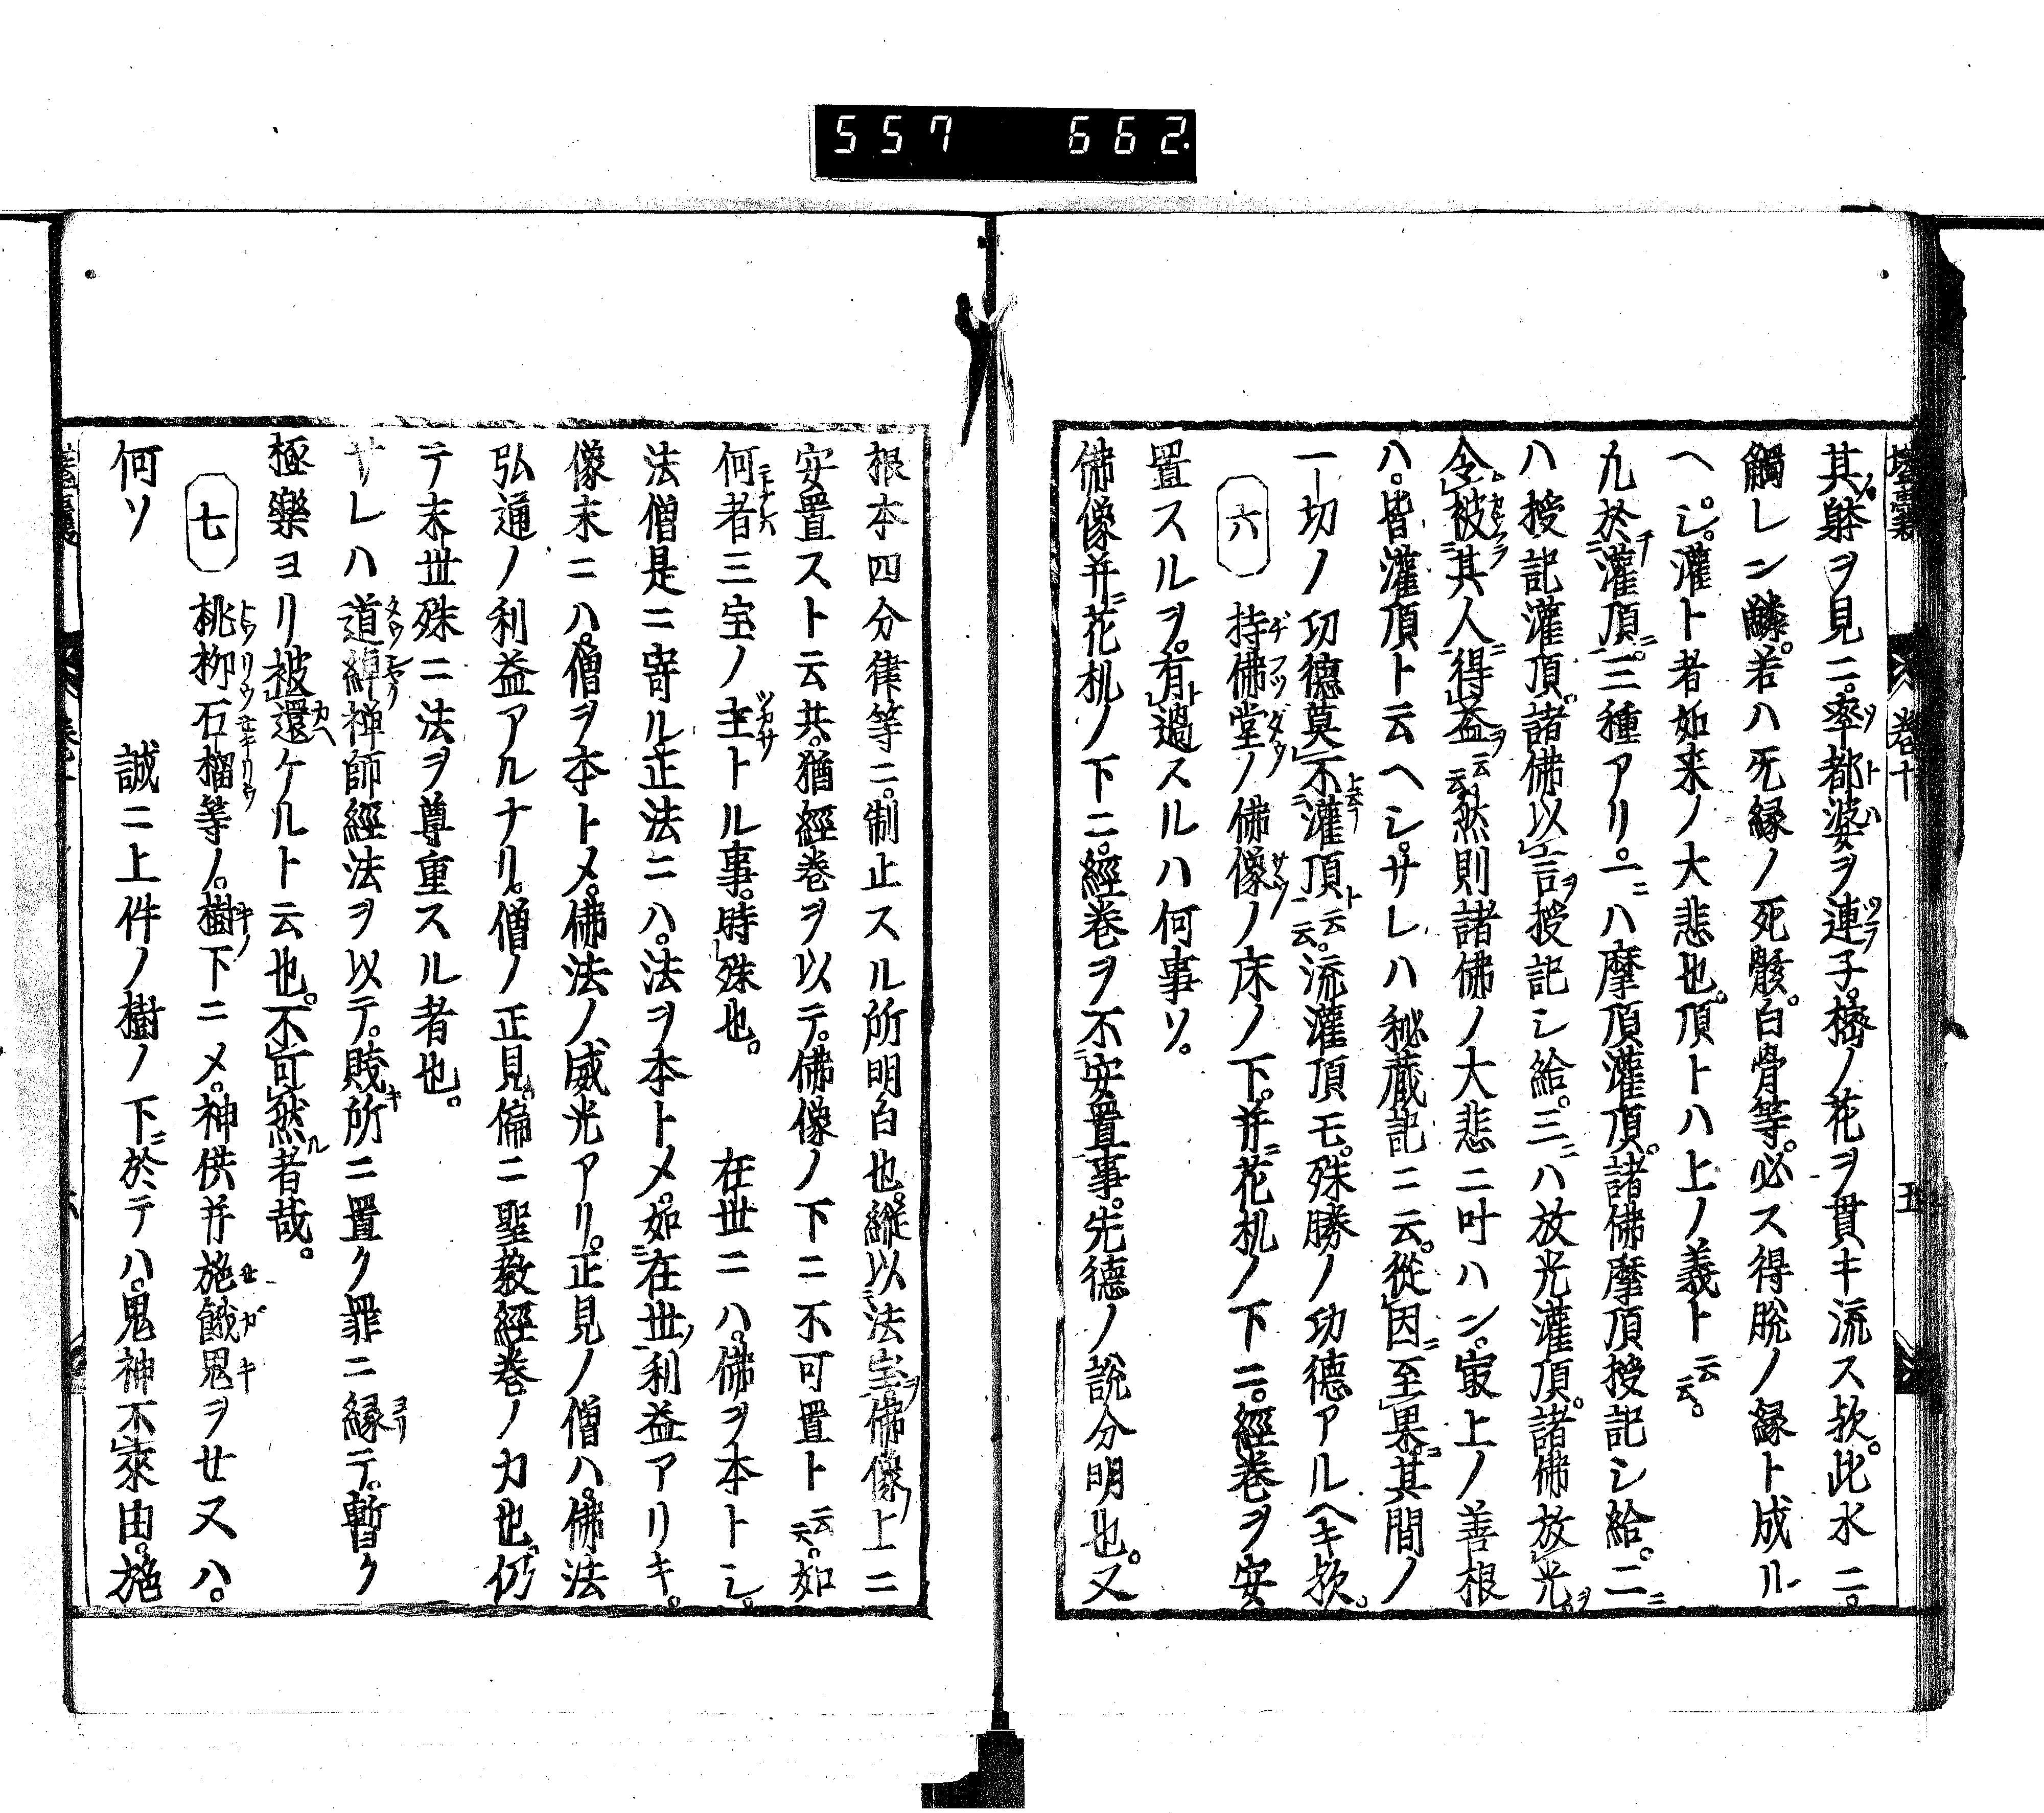 557 662
壒囊 巻十 五
其躰ヲ見ニ。率都婆ヲ連子。橋ノ花ヲ貫キ流ス欤。此水ニ。
觸レン鱗。若ハ死縁ノ死骸。白骨等。必ス得脱ノ縁ト成ル
ヘシ。灌ト者如来ノ大悲也。頂トハ上ノ義ト云云。
凡於灌頂。三種アリ。一ニハ摩頂灌頂。諸佛摩頂授記シ給。二ニ
ハ授記灌頂。諸佛以言授記シ給。三ニハ放光灌頂。諸佛放光ヲ
令被其人得益云云。然則諸佛ノ大悲ニ叶ハン。冣上ノ善根
ハ。皆灌頂ト云ヘシ。サレハ秘蔵記ニ云。從因至果。其間ノ
一切ノ功德莫不灌頂云云。流灌頂モ。殊勝ノ功德アルヘキ欤。
六 持佛堂ノ佛像ノ床ノ下。并花机ノ下ニ。經巻ヲ安
置スルヲ。有過スルハ何事ソ。
佛像并花机ノ下ニ。經巻ヲ不安置事。先德ノ説分明也。又
根本四分律等ニ。制止スル所明白也。縱以法宝佛像上ニ
安置スト云共。猶經巻ヲ以テ。佛像ノ下ニ不可置ト云云。如
何者三宝ノ主トル事。時殊也。 在世ニハ。佛ヲ本トシ。
法僧是ニ寄ル正法ニハ。法ヲ本トメ。如在世利益アリキ。
像末ニハ。僧ヲ本トメ。佛法ノ威光アリ。正見ノ僧ハ。佛法
弘通ノ利益アルナリ。僧ノ正見。偏ニ聖教經巻ノ力也。仍
テ末世殊ニ法ヲ尊重スル者也。
サレハ道綽禅師經法ヲ以テ。賤所ニ置ク罪ニ縁テ。暫ク
極樂ヨリ被還ケルト云也。不可然者哉。
七 桃栁石榴等ノ。樹下ニメ。神供并施餓鬼ヲせヌハ。
何ソ 誠ニ上件ノ樹ノ下ニ於テハ。鬼神不來由。施